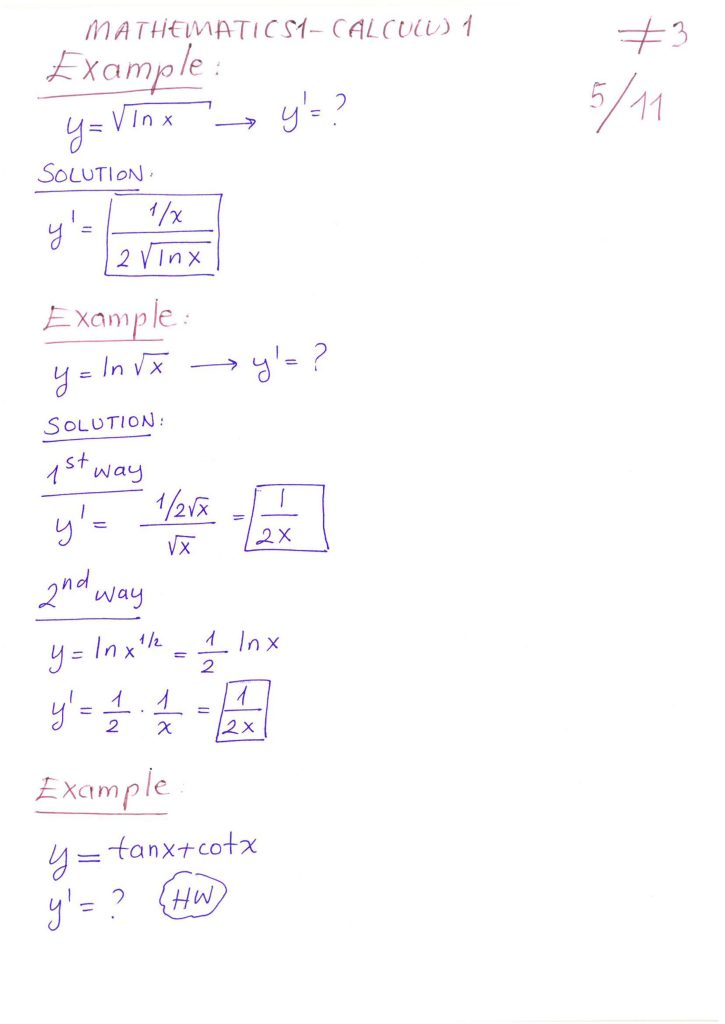 MATHEMATICS1-CALCULUS 1 #3
Example: 5/11
y = √(ln x) → y' = ?
SOLUTION.
y' = (1/x)/(2√(ln x))
Example:
y = ln √x → y' = ?
SOLUTION:
1st way
y' = (1/2√x)/(√x) = 1/(2x)
2nd way
y = ln x^(1/2) = 1/2 ln x
y' = 1/2 · 1/x = 1/(2x)
Example:
y = tanx+cotx
y' = ? HW